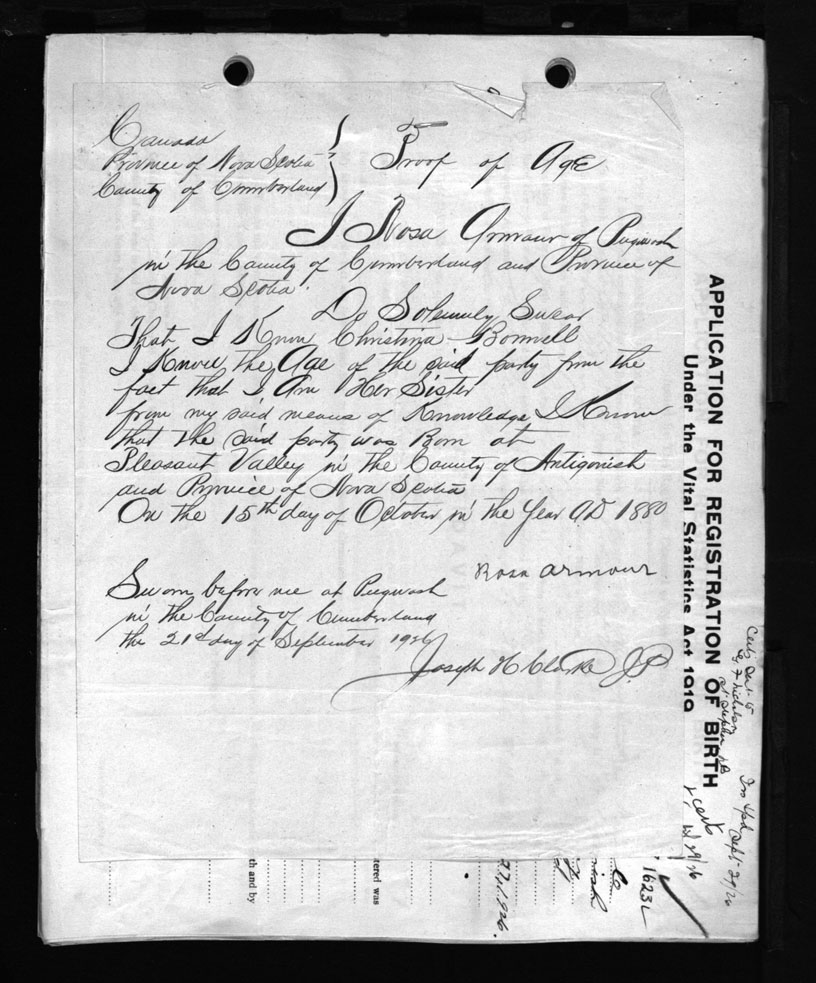 Canada
Province of Nova Scotia
County of Cumberland
Proof of Age
I Rosa Armour of Pugwash
in the County of Cumberland and Province of
Nova Scotia.
Do Solemnly Swear
That I Know Christina Bonnell
I Know the Age of the said party from the
fact that I Am Her Sister
from my said means of Knowledge I Know
that the said party was Born at
Pleasant Valley in the County of Antigonish
and Province of Nova Scotia
On the 15th day of October in the Year A.D 1880
Rosa Armour
Sworn before me at Pugwash
in the County of Cumberland
the 21st day of September 1926
Joseph H Clarke J.P
APPLICATION FOR REGISTRATION OF BIRTH
Under the Vital Statistics Act 1919
Sept 29/26
16232
th and by
tered was